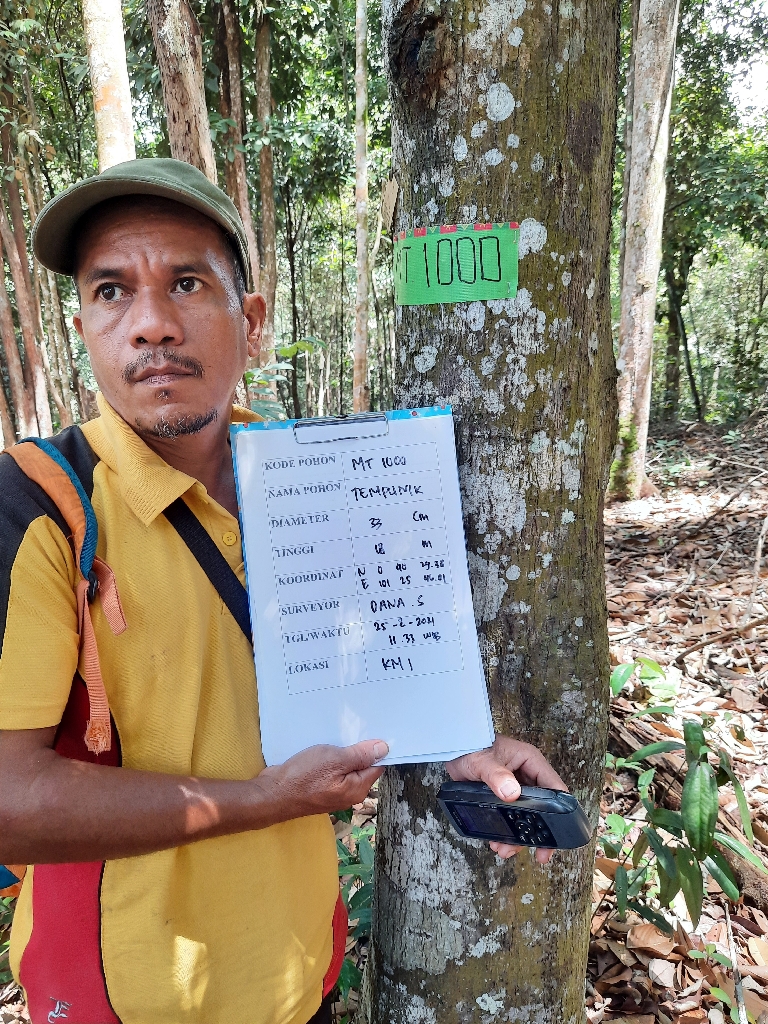 MT 1000
KODE POHON MT 1000
NAMA POHON TEMPUNIK
DIAMETER 33 Cm
TINGGI 18 m
KOORDINAT N 0 40 29.38
E 101 25 46.01
SURVEYOR DANA .S
TGL/WAKTU 25-2-2021
11.33 WIB
LOKASI KM 1